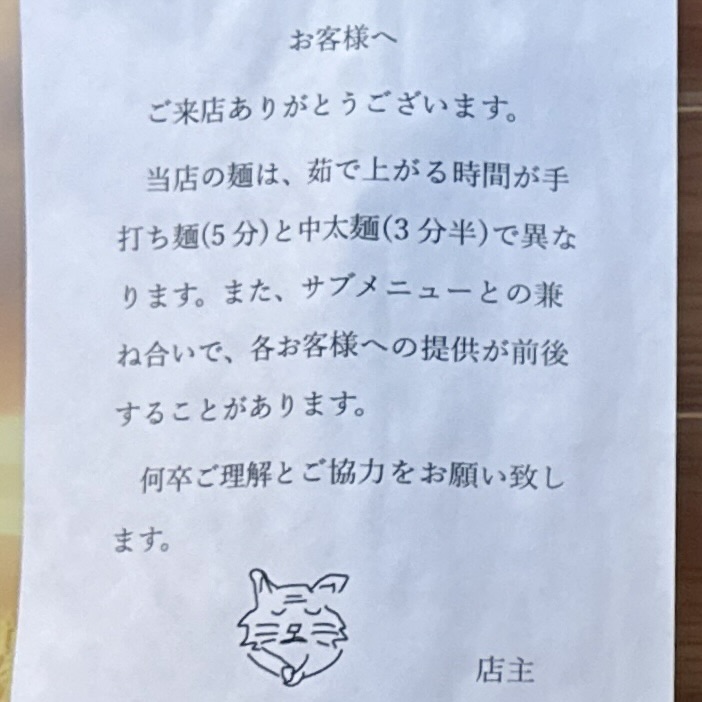 お客様へ
ご来店ありがとうございます。
当店の麺は、茹で上がる時間が手
打ち麺(5 分)と中太麺(3 分半)で異な
ります。また、サブメニューとの兼
ね合いで、各お客様への提供が前後
することがあります。
何卒ご理解とご協力をお願い致し
ます。
店主